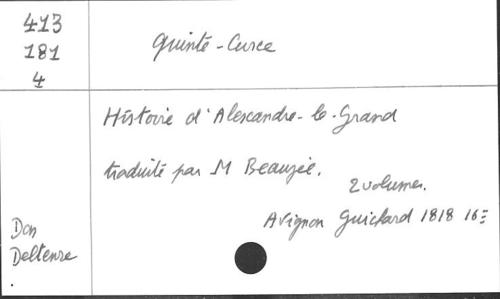 413
181
4
Quinte-Curce
Histoire d'Alexandre-le-Grand
traduite par M Beauzée.
2 volumes.
Avignon Guichard 1818 16=
Don
Deltenre